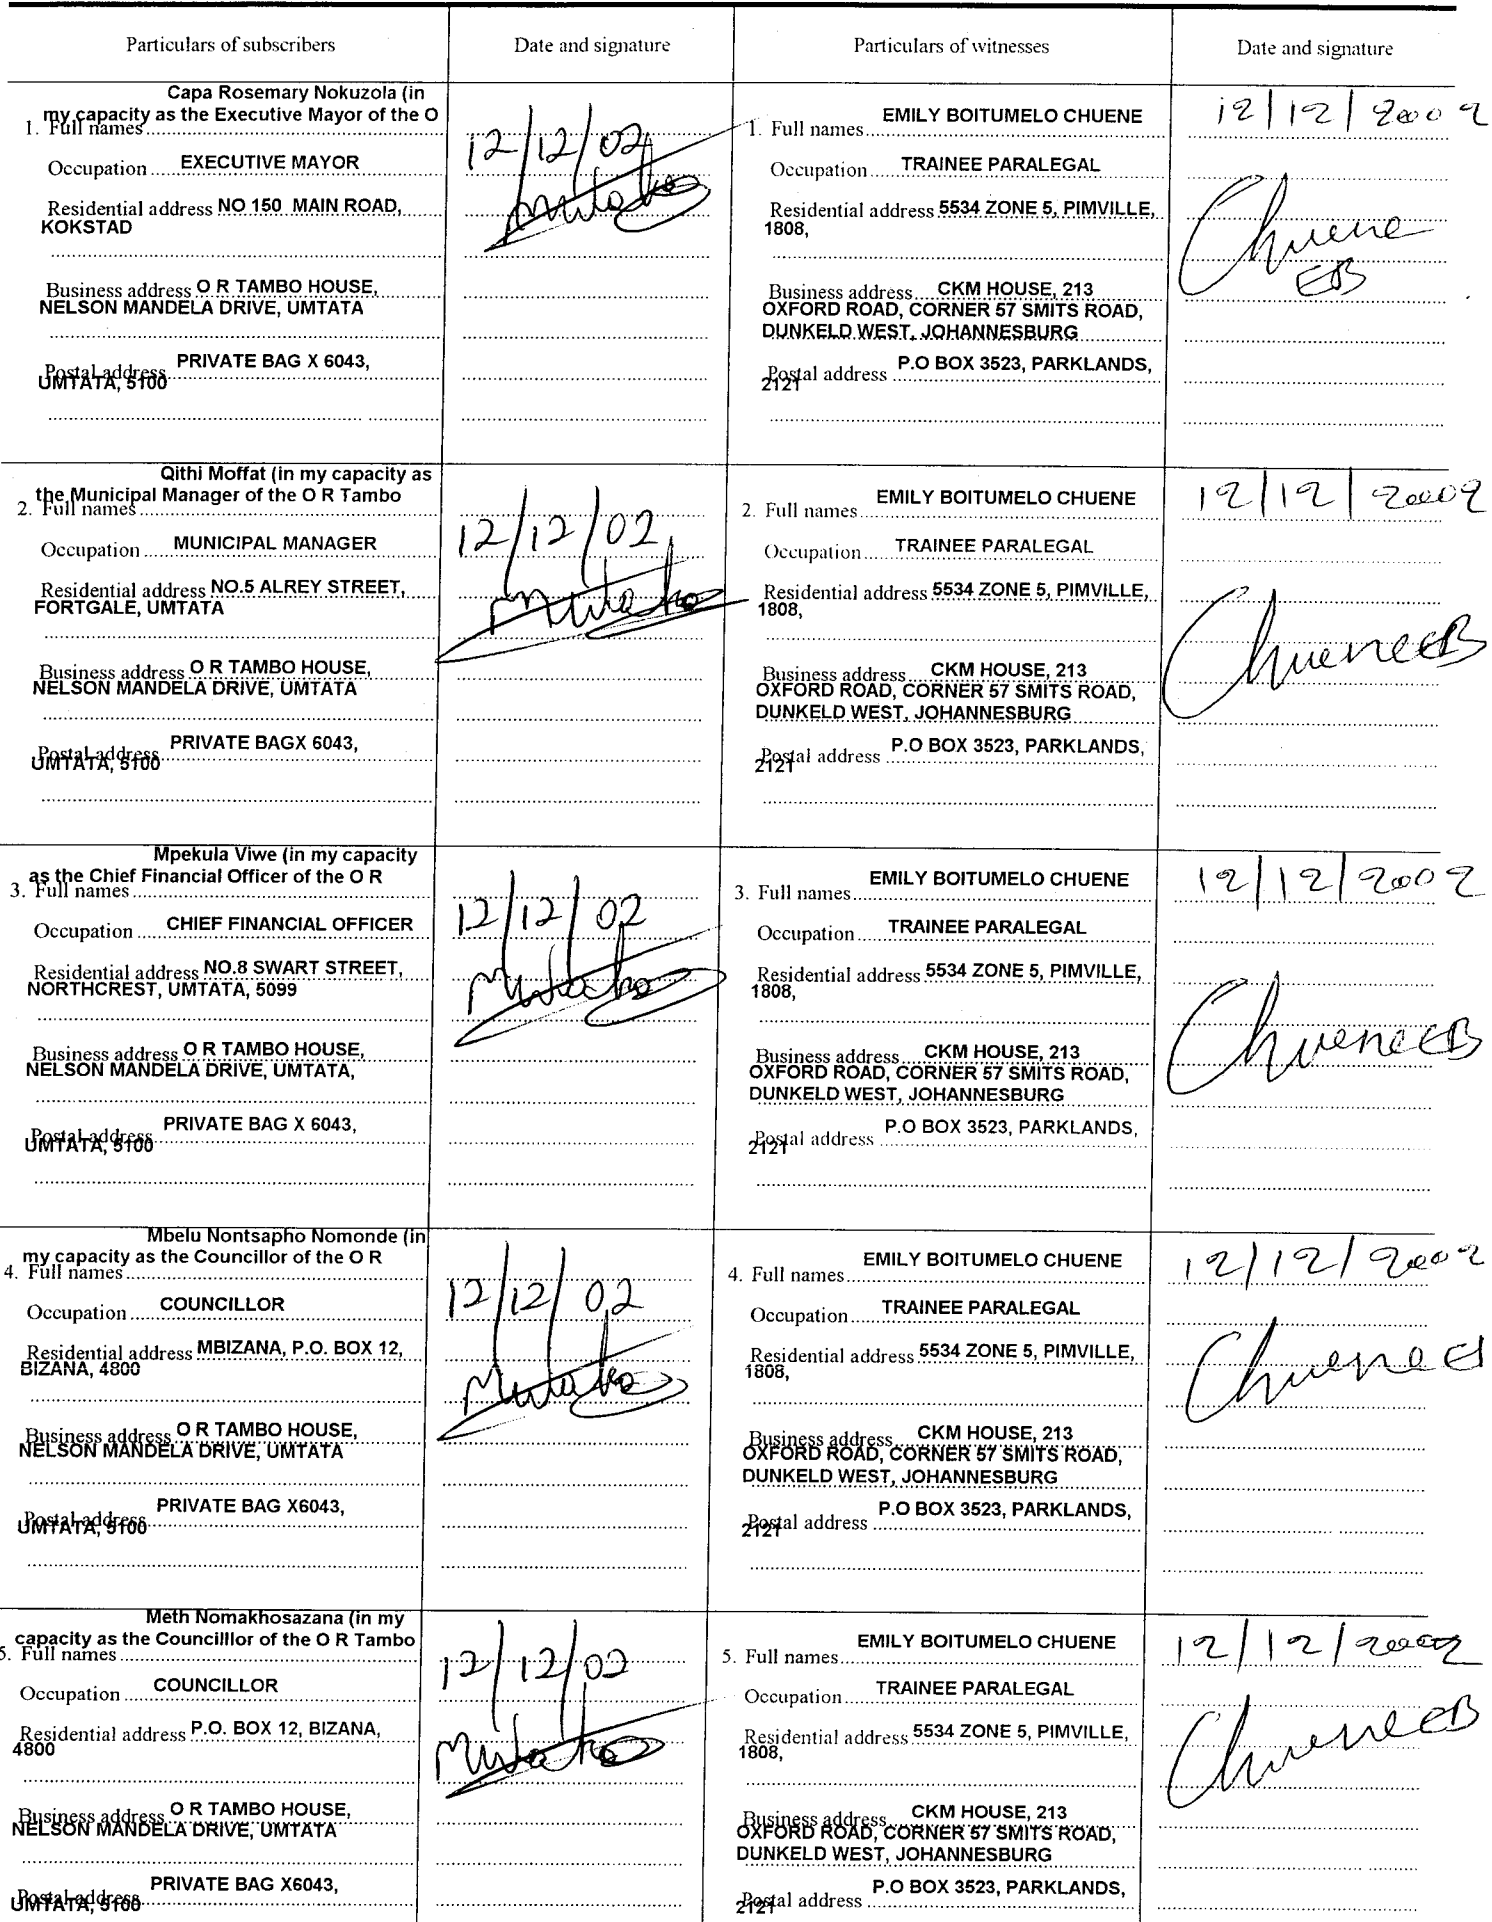 Particulars of subscribers
Date and signature
Particulars of witnesses
Date and signature
Capa Rosemary Nokuzola (in
my capacity as the Executive Mayor of the O
1. Full names
Occupation EXECUTIVE MAYOR
Residential address NO 150 MAIN ROAD,
KOKSTAD
Business address O R TAMBO HOUSE,
NELSON MANDELA DRIVE, UMTATA
Postal address PRIVATE BAG X 6043,
UMTATA, 5100
12/12/02
1. Full names EMILY BOITUMELO CHUENE
Occupation TRAINEE PARALEGAL
Residential address 5534 ZONE 5, PIMVILLE,
1808,
Business address CKM HOUSE, 213
OXFORD ROAD, CORNER 57 SMITS ROAD,
DUNKELD WEST, JOHANNESBURG
Postal address P.O BOX 3523, PARKLANDS,
2121
12/12/2002
Chuene
EB
Qithi Moffat (in my capacity as
the Municipal Manager of the O R Tambo
2. Full names
Occupation MUNICIPAL MANAGER
Residential address NO.5 ALREY STREET,
FORTGALE, UMTATA
Business address O R TAMBO HOUSE,
NELSON MANDELA DRIVE, UMTATA
Postal address PRIVATE BAGX 6043,
UMTATA, 5100
12/12/02
2. Full names EMILY BOITUMELO CHUENE
Occupation TRAINEE PARALEGAL
Residential address 5534 ZONE 5, PIMVILLE,
1808,
Business address CKM HOUSE, 213
OXFORD ROAD, CORNER 57 SMITS ROAD,
DUNKELD WEST, JOHANNESBURG
Postal address P.O BOX 3523, PARKLANDS,
2121
12/12/2002
Chuene EB
Mpekula Viwe (in my capacity
as the Chief Financial Officer of the O R
3. Full names
Occupation CHIEF FINANCIAL OFFICER
Residential address NO.8 SWART STREET,
NORTHCREST, UMTATA, 5099
Business address O R TAMBO HOUSE,
NELSON MANDELA DRIVE, UMTATA,
Postal address PRIVATE BAG X 6043,
UMTATA, 5100
12/12/02
3. Full names EMILY BOITUMELO CHUENE
Occupation TRAINEE PARALEGAL
Residential address 5534 ZONE 5, PIMVILLE,
1808,
Business address CKM HOUSE, 213
OXFORD ROAD, CORNER 57 SMITS ROAD,
DUNKELD WEST, JOHANNESBURG
Postal address P.O BOX 3523, PARKLANDS,
2121
12/12/2002
Chuene EB
Mbelu Nontsapho Nomonde (in
my capacity as the Councillor of the O R
4. Full names
Occupation COUNCILLOR
Residential address MBIZANA, P.O. BOX 12,
BIZANA, 4800
Business address O R TAMBO HOUSE,
NELSON MANDELA DRIVE, UMTATA
Postal address PRIVATE BAG X6043,
UMTATA, 5100
12/12/02
4. Full names EMILY BOITUMELO CHUENE
Occupation TRAINEE PARALEGAL
Residential address 5534 ZONE 5, PIMVILLE,
1808,
Business address CKM HOUSE, 213
OXFORD ROAD, CORNER 57 SMITS ROAD,
DUNKELD WEST, JOHANNESBURG
Postal address P.O BOX 3523, PARKLANDS,
2121
12/12/2002
Chuene
Meth Nomakhosazana (in my
capacity as the Councilllor of the O R Tambo
5. Full names
Occupation COUNCILLOR
Residential address P.O. BOX 12, BIZANA,
4800
Business address O R TAMBO HOUSE,
NELSON MANDELA DRIVE, UMTATA
Postal address PRIVATE BAG X6043,
UMTATA, 5100
12/12/02
5. Full names EMILY BOITUMELO CHUENE
Occupation TRAINEE PARALEGAL
Residential address 5534 ZONE 5, PIMVILLE,
1808,
Business address CKM HOUSE, 213
OXFORD ROAD, CORNER 57 SMITS ROAD,
DUNKELD WEST, JOHANNESBURG
Postal address P.O BOX 3523, PARKLANDS,
2121
12/12/2002
Chuene EB